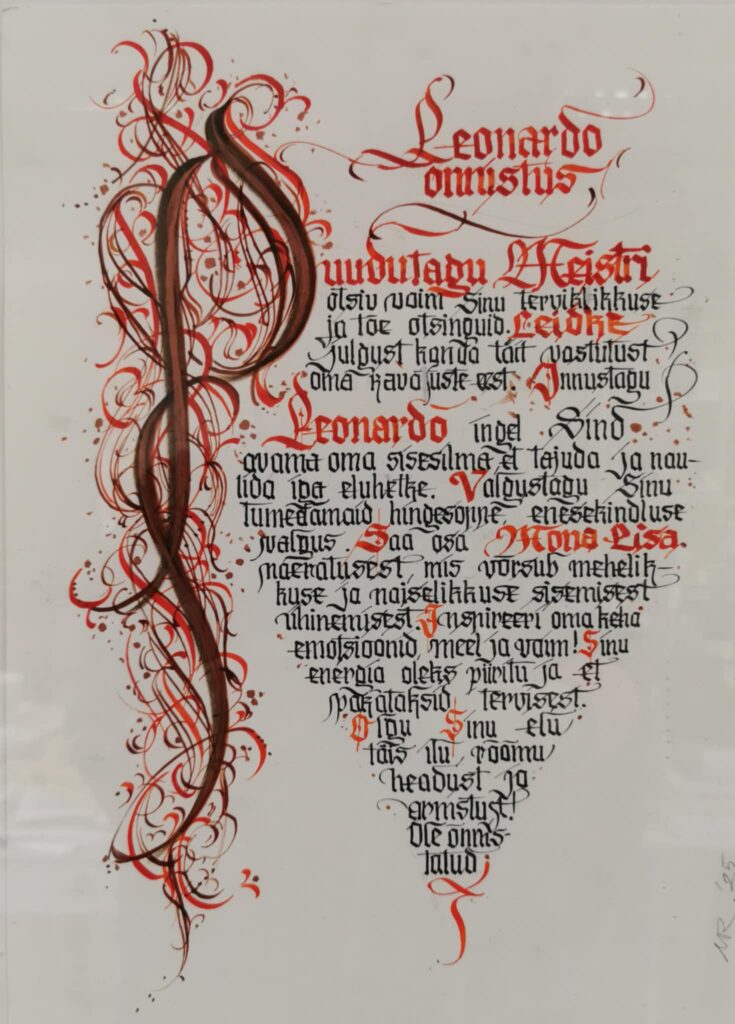 Leonardo
õnnistus
Puudutagu Meistri
otsiv vaim Sinu terviklikkuse
ja tõe otsinguid. Leidke
julgust kanda täit vastutust
oma kavajuste eest. Innustagu
Leonardo ingel Sind
avama oma sisesilma et tajuda ja nau-
tida iga eluhetke. Valgustagu Sinu
tumedamaid hingesoppe enesekindluse
valgus. Saa osa Mona Lisa.
naeratusest mis võrsub mehelik-
kuse ja naiselikkuse sisemisest
ühinemisest. Inspireeri oma keha
emotsioonid, meel ja vaim! Sinu
energia oleks piiritu ja et
pakataksid tervisest.
Olgu Sinu elu
täis ilu, rõõmu
headust ja
armstust!
Ole õnnis-
tatud
MR '25